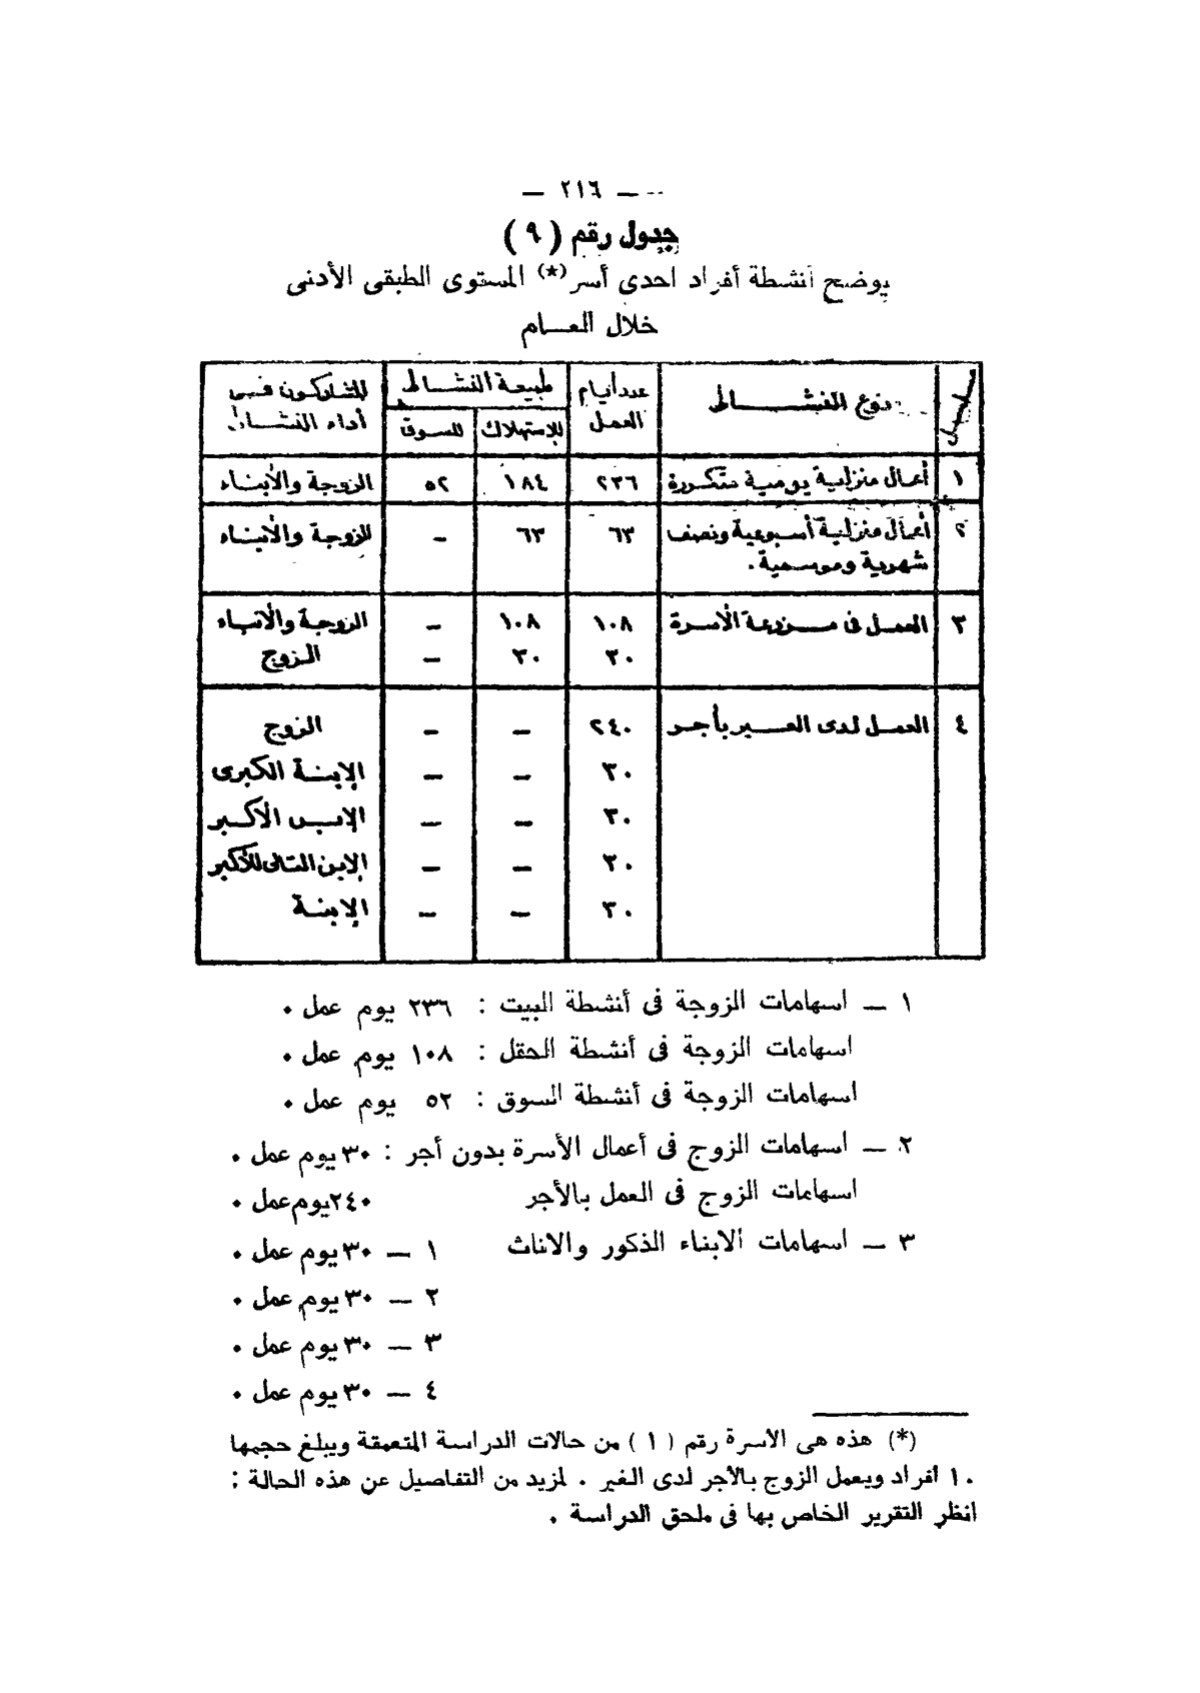 — ٢١٦ —
جدول رقم ( ٩ )
يوضح أنشطة أفراد احدى أسر(*) المستوى الطبقى الأدنى
خلال العـــام
مسلسل نوع النشــــاط عدد أيام العمل طبيعة النشـــاط للإستهلاك للسـوق المشاركون فـى أداء النشـاط
١ أعمال منزلية يومية متكـررة ٢٣٦ ١٨٤ ٥٢ الزوجة والأبنـاء
٢ أعمال منزلية أسبوعية ونصف ٦٣ ٦٣ – الزوجة والأبنـاء
شهرية وموسمية .
٣ العمـل فى مـــزرعة الأسرة ١٠٨ ١٠٨ – الزوجة والأبناء
٣٠ ٣٠ – الـزوج
٤ العمـل لدى الغـــير بأجـر ٢٤٠ – – الزوج
٣٠ – – الإبنـة الكبرى
٣٠ – – الإبـن الأكـبر
٣٠ – – الإبن التالى للأكبر
٣٠ – – الإبنـة
١ — اسهامات الزوجة فى أنشطة البيت : ٢٣٦ يوم عمل ٠
اسهامات الزوجة فى أنشطة الحقل : ١٠٨ يوم عمل ٠
اسهامات الزوجة فى أنشطة السوق : ٥٢ يوم عمل ٠
٢ — اسهامات الزوج فى أعمال الأسرة بدون أجر : ٣٠ يوم عمل ٠
اسهامات الزوج فى العمل بالأجر ٢٤٠ يوم عمل ٠
٣ — اسهامات الابناء الذكور والاناث ١ — ٣٠ يوم عمل ٠
٢ — ٣٠ يوم عمل ٠
٣ — ٣٠ يوم عمل ٠
٤ — ٣٠ يوم عمل ٠
(*) هذه هى الأسرة رقم ( ١ ) من حالات الدراسة المتعمقة ويبلغ حجمها
١٠ أفراد ويعمل الزوج بالأجر لدى الغير . لمزيد من التفاصيل عن هذه الحالة :
انظر التقرير الخاص بها فى ملحق الدراسة .